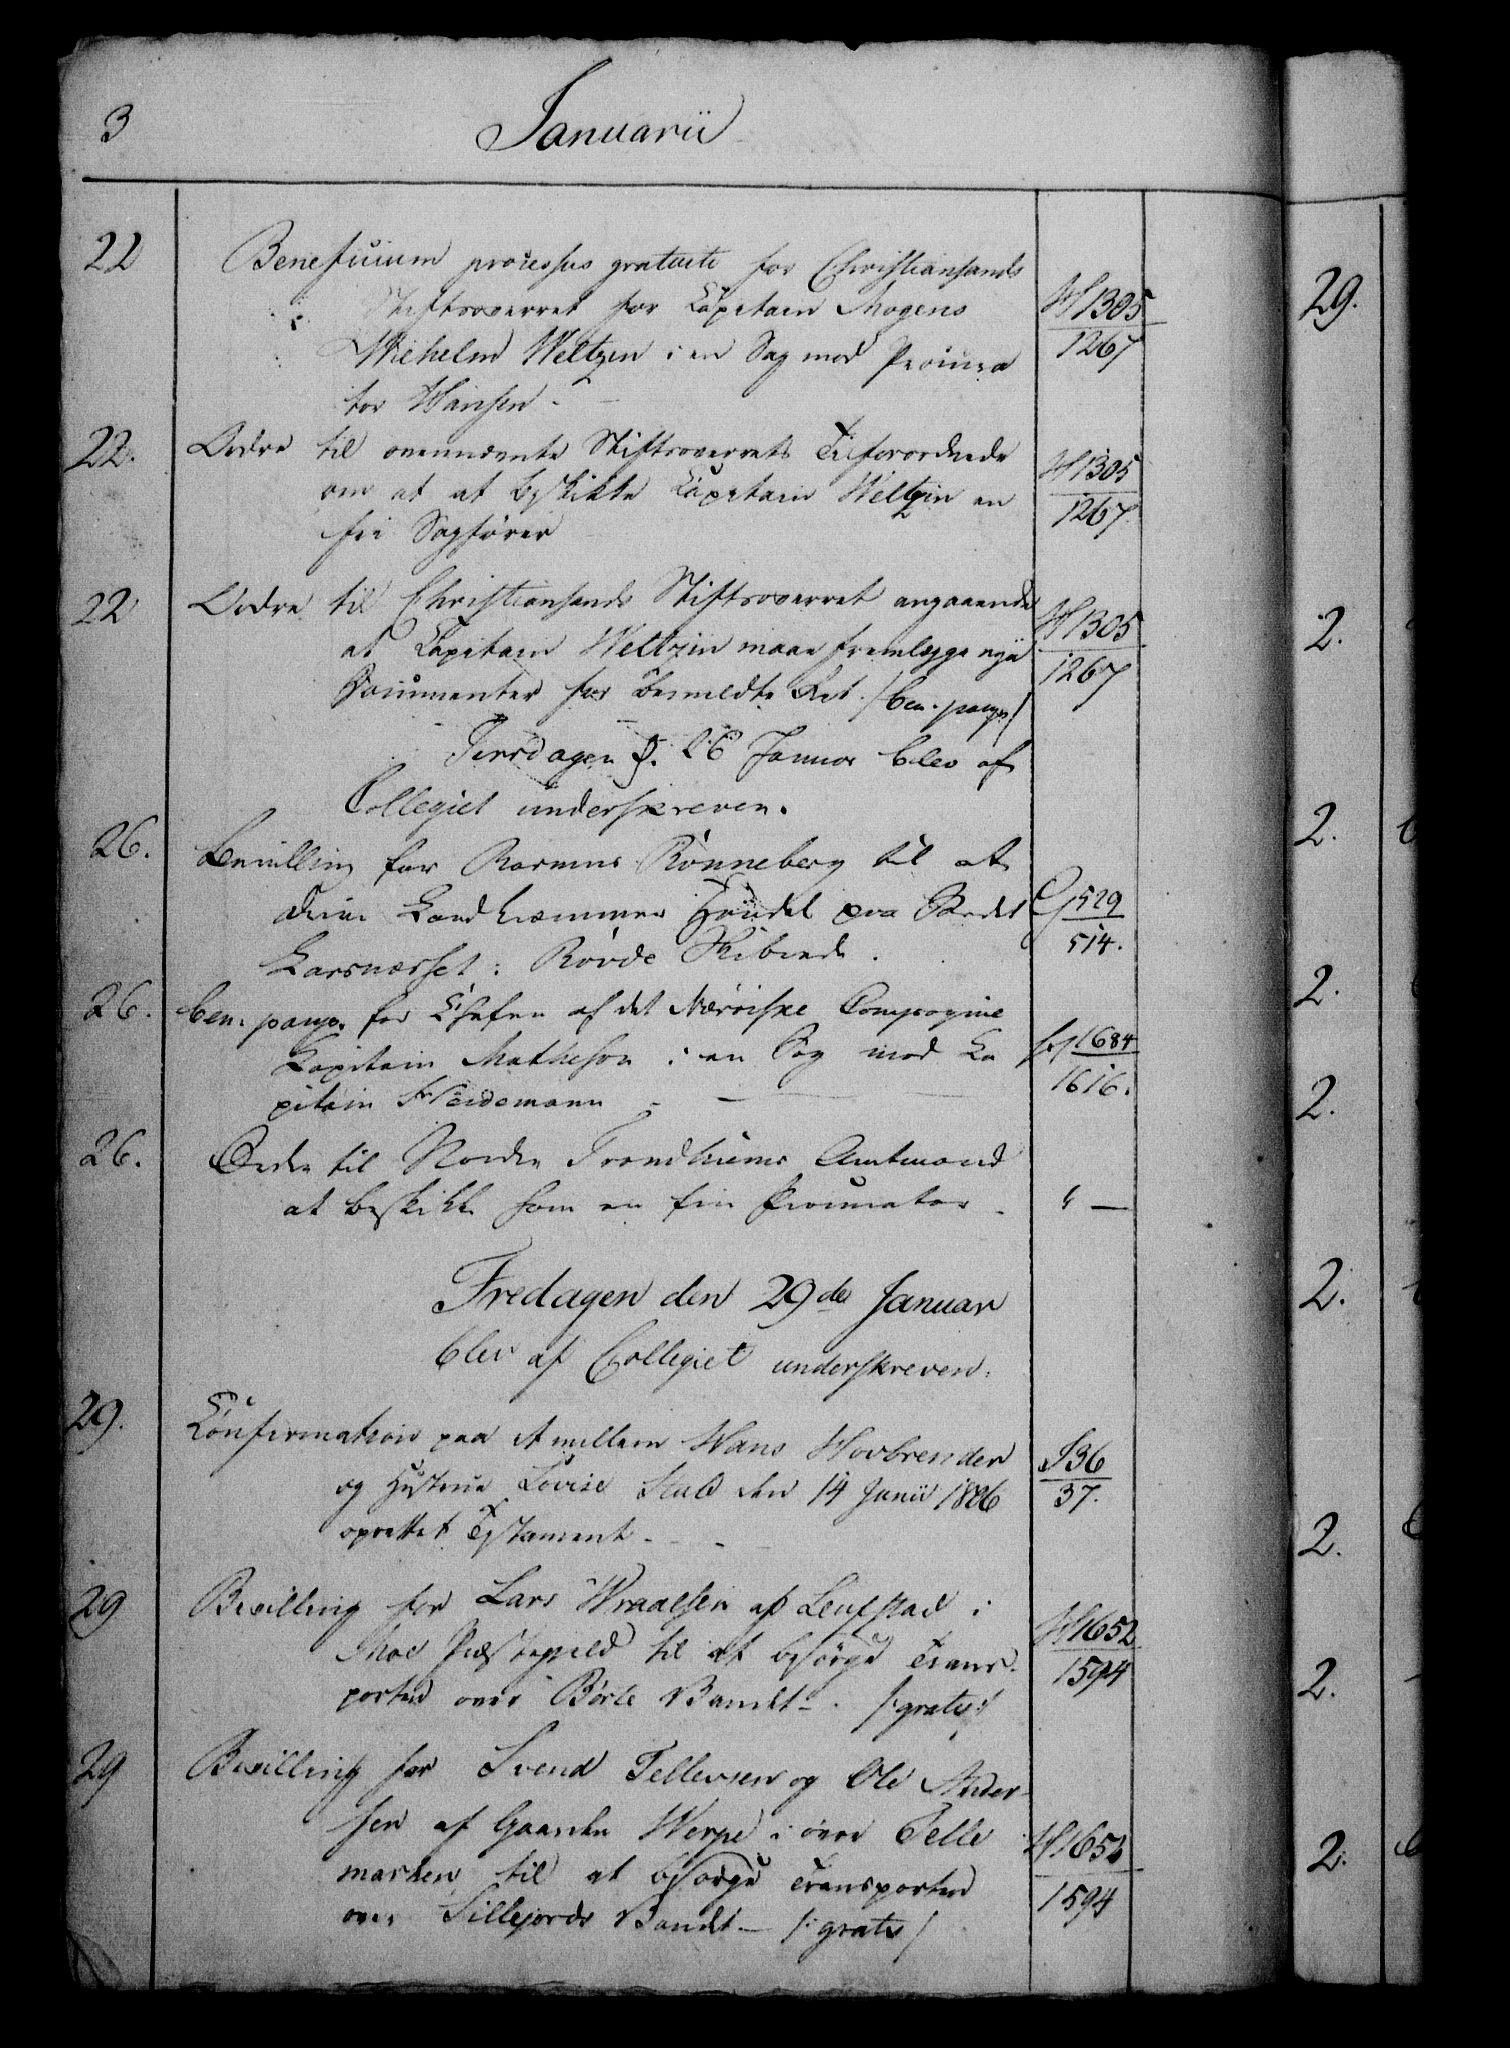 3 Januarii
22 Beneficium processus gratuiti for Christiansands
Stiftsoverret for Capitain Mogens
Wilhelm Weltzin i en Sag mod Procura
tor Hansen. W 1305 / 1267
22. Ordre til ovennævnte Stiftsoverrets Tilforordnede
om at at beskikke Capitain Weltzin en
fri Sagfører W 1305 / 1267
22 Ordre til Christiansands Stiftsoverret angaaende
at Capitain Weltzin maae fremlægge nye
Documenter for bemeldte Ret. /ben. paup/ W 1305 / 1267
Tirsdagen d. 26 Januar blev af
Collegiet underskreven.
26. Bevilling for Rasmus Rønneberg til at
drive Landhæmmer Handel paa Stedet
Larsnæsset i Røvde Skibrede. G 529 / 514.
26. ben. paup. for Chefen af det Nærøiske Compagnie
Capitain Matheson i en Sag mod Ca
pitain Heidemann - 1684 / 1616.
26. Ordre til Nordre Trondhiems Amtmand
at beskikke ham en fri Procurator - " —
Fredagen den 29de Januar
blev af Collegiet underskreven.
29. Confirmation paa et mellem Hans Hovbrender
og Hustrue Lovise Stub den 14 Junii 1806
oprettet Testament - S 36 / 37.
29 Bevilling for Lars Wraalsen af Leufstad i
Moe Præstegield til at besørge Trans-
porten over Børte Vandet -. /: gratis :/ W 1652 / 1594
29 Bevilling for Svend Tellevsen og Ole Ander-
sen af Gaarden Werpe i øvre Telle
marken til at besørge Transporten
over Sillejords Vandet - /: gratis / W 1652 / 1594
29.
2.
2.
2.
2.
2.
2.
2.
2.